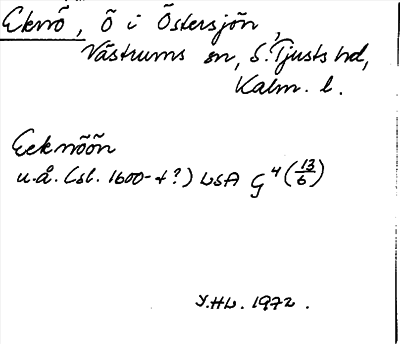 Eknö, Ö i Östersjön,
Västrums sn, S. Tjusts hd,
Kalm. l.
Eeknöön
u.å. (sl. 1600-t?) LSA G⁴ (13/6)
Y.HL. 1972.